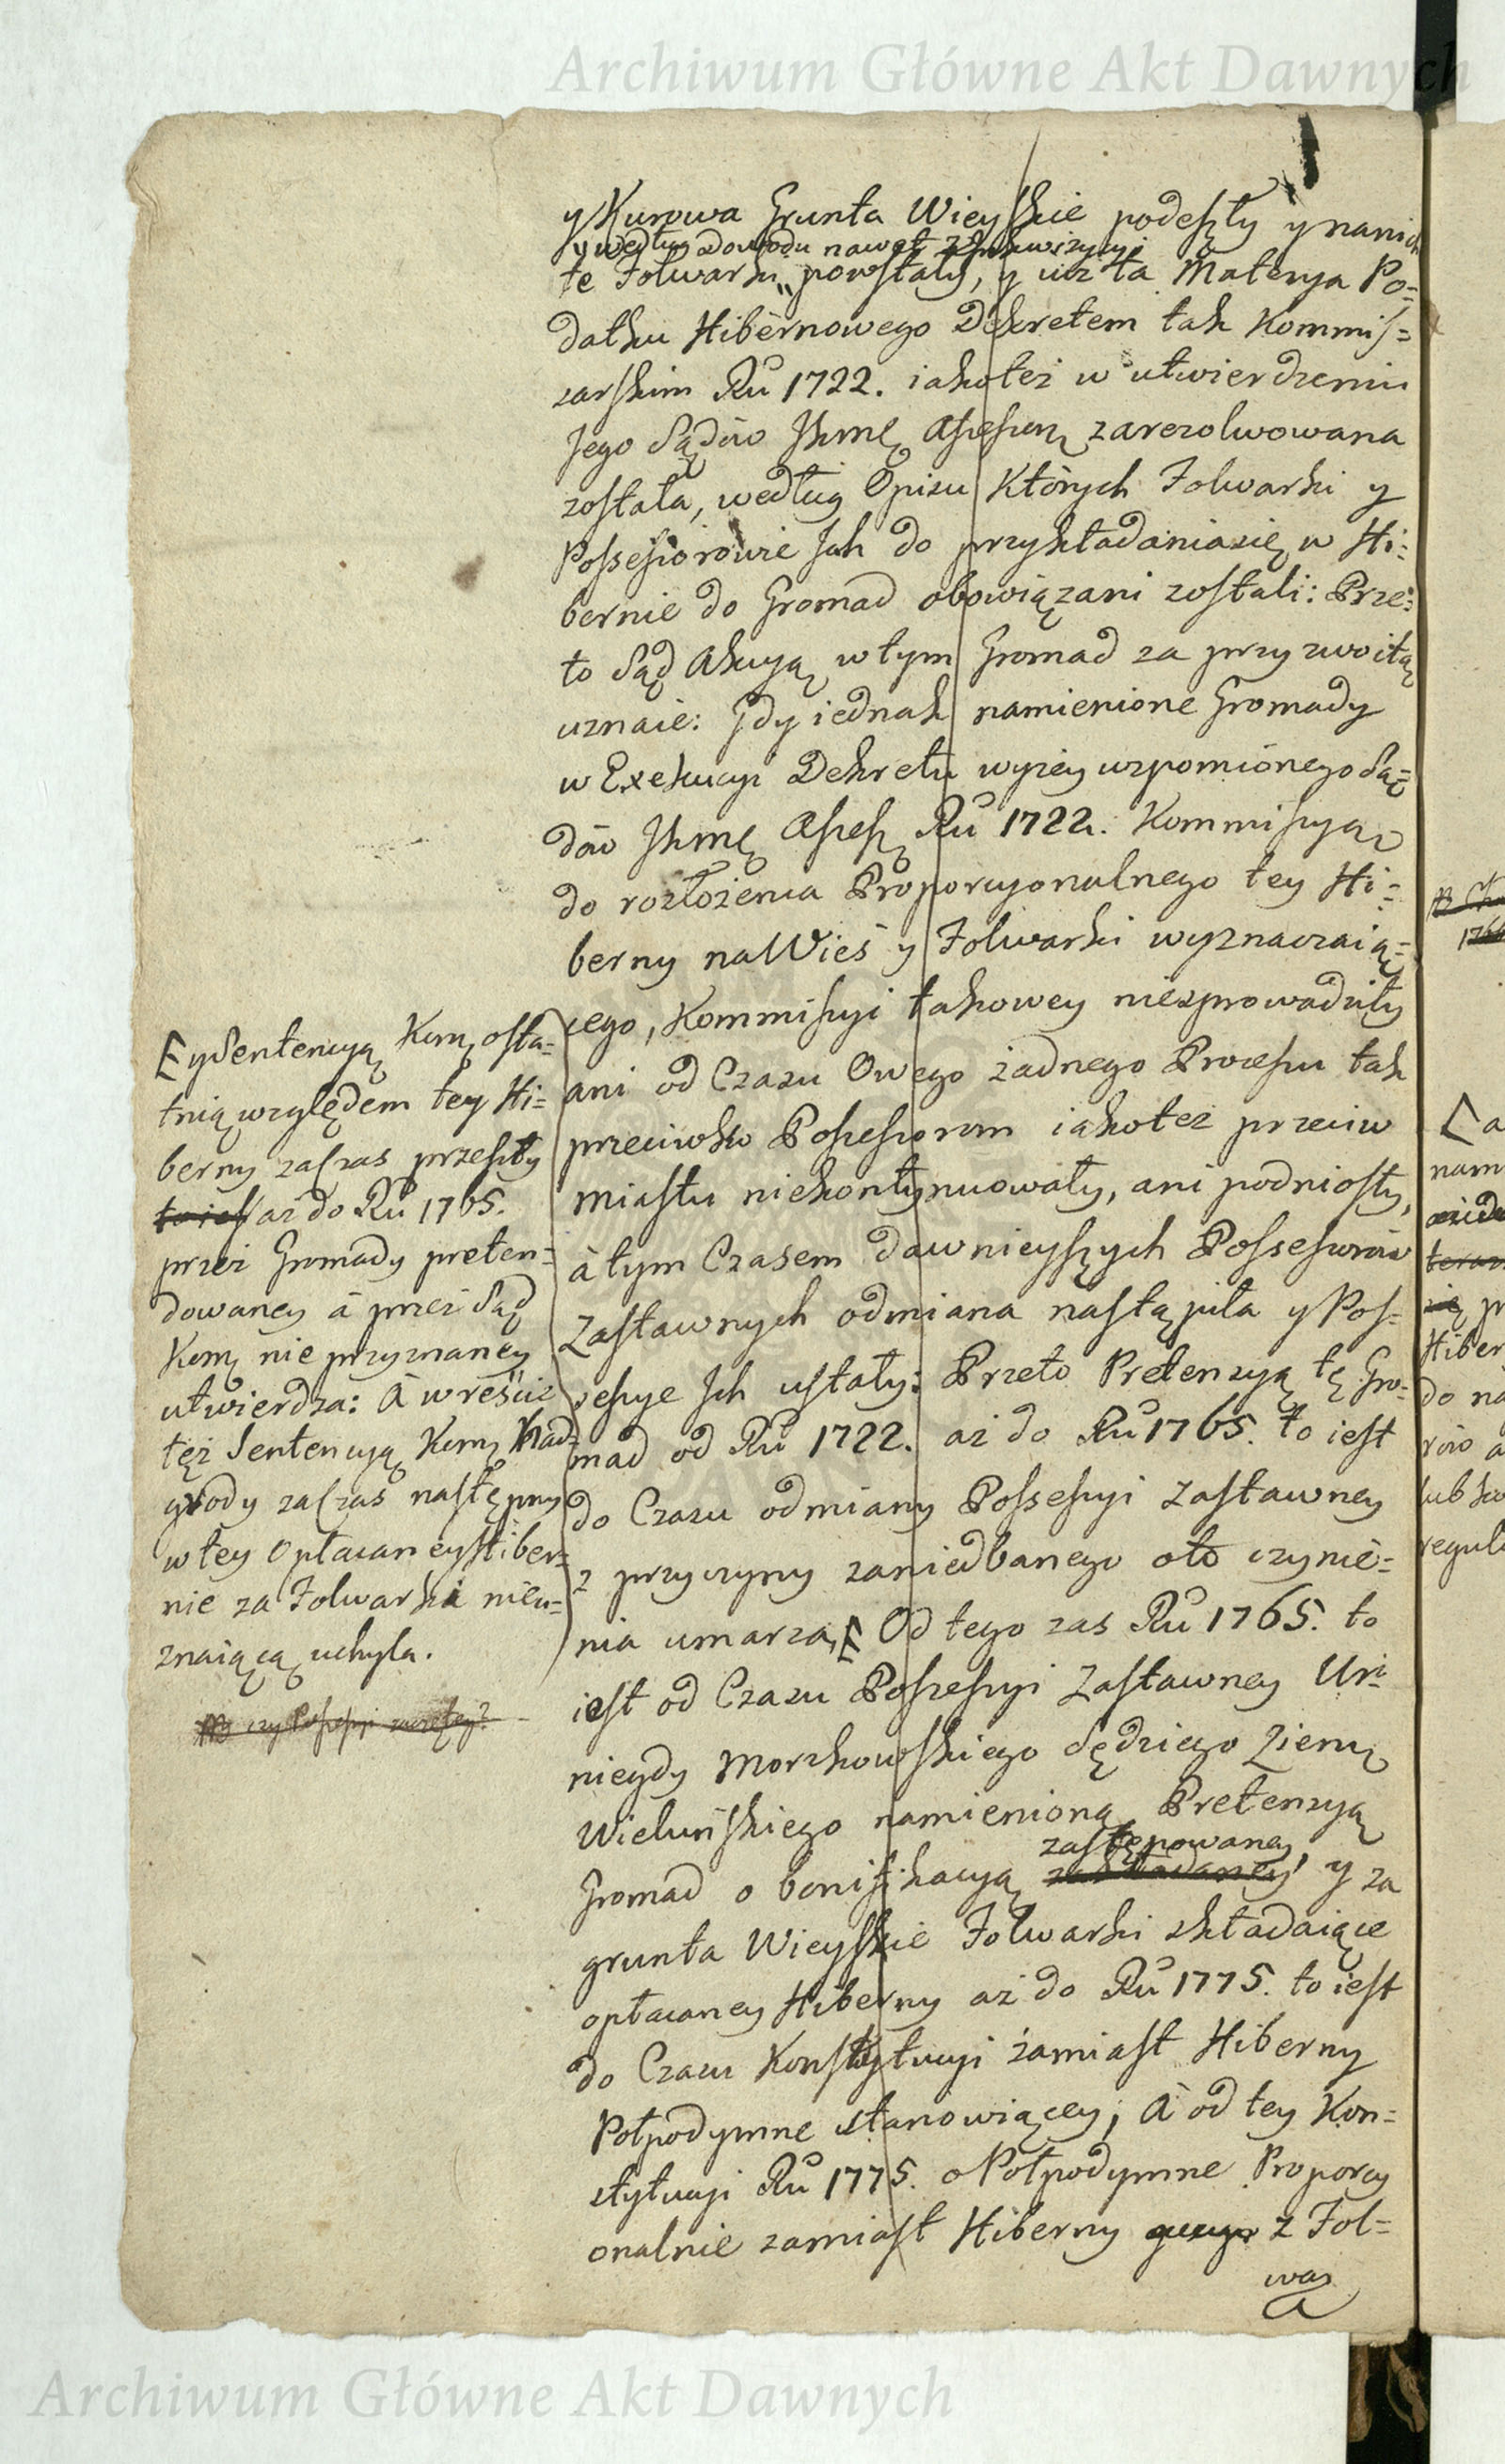 Archiwum Główne Akt Dawnych
y Kurowa Grunta Wieyskie podeszły y nanich
y według Dowodu nawet z Inkwizycyi
te Folwarki powstały, y iuż ta Materya Po=
datku Hibernowego Dekretem tak Kommis=
sarskim Rů 1722. iakoteż w utwierdzeniu
Jego Sądów JKmę Assessorę zarezolwowana
została, według Opisu Których Folwarki y
Possessorowie Jch do przykładania się w Hi=
bernie do Gromad obowiązani zostali: Prze=
to Sąd Akcyą w tym Gromad za przyzwoitą
uznaie: Gdy iednak namienione Gromady
w Exekucyi Dekretu wyżey wzpomionego Są=
dów JKmę Assessę Rů 1722. Kommissyą
do rozłożenia Proporcyonalnego tey Hi=
berny na Wieś y Folwarki wyznaczaią=
cego, Kommissyi takowey niezprowadziły
ani od Czasu Owego żadnego Processu tak
przeciwko Possessorom iakoteż przeciw
Miastu niekontynuowały, ani podniosły,
à tym Czasem dawnieyszych Possessorów
Zastawnych odmiana nastąpiła y Pos=
sessye Jch ustały: Przeto Pretensyą tę Gro=
mad od Rů 1722. aż do Rů 1765. to iest
do Czasu odmiany Possessyi Zastawney
z przyczyny zaniedbanego oto czynie=
nia umarza, E Od tego zas Rů 1765. to
iest od Czasu Possessyi Zastawney Ur:
niegdy Morzkowskiego Sędziego Ziemę
Wieluńskiego namienioną Pretensyą
zastępowaney,
Gromad o bonifikacyą zakładaney, y za
grunta Wieyskie Folwarki składaiące
opłacaney Hiberny aż do Rů 1775. to iest
do Czasu Konstytucyi zamiast Hiberny
Połpodymne stanowiącey; A od tey Kon=
stytucyi Rů 1775. o Połpodymne Proporcy
onalnie zamiast Hiberny z Fol=
war
E y Sentencyą Kom̨ osta=
tnią względem tey Hi=
berny za Czas przeszły
to iest aż do Rů 1765.
przez Gromady preten=
dowaney à przez Sąd
Kom̨ nie przyznaney
utwierdza: A wreście
też Sentencyą Kom̨ Nad=
grody za Czas następny
w tey Opłacaney Hiber=
nie za Folwarki nieu=
znaiącą uchyla.
NB czy Possessyi
Archiwum Główne Akt Dawnych